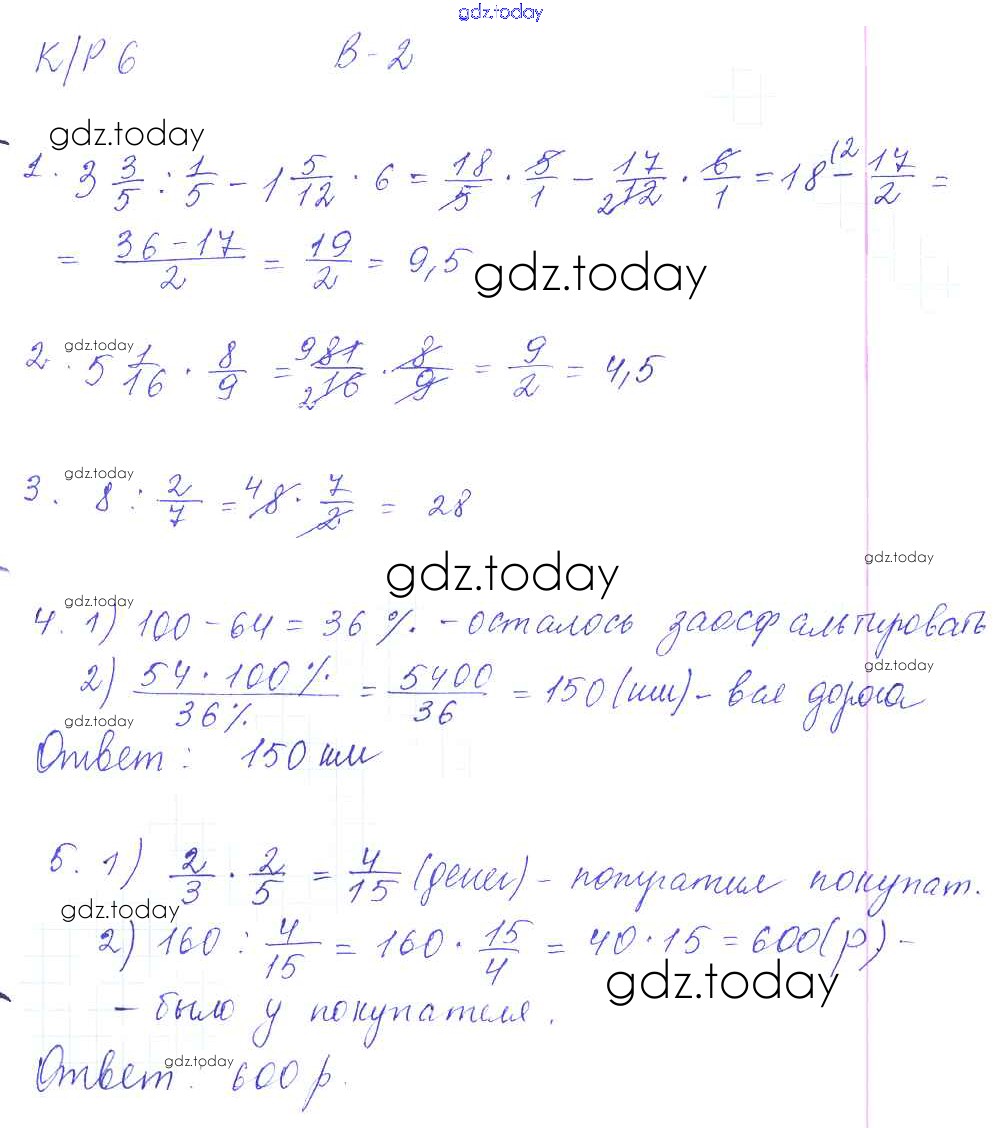 gdz.today
К/Р 6 В-2
gdz.today
1. 3 3/5 : 1/5 - 1 5/12 · 6 = 18/5 · 5/1 - 17/12 2 · 6/1 = 18 (2 - 17/2 =
= 36-17/2 = 19/2 = 9,5 gdz.today
gdz.today
2. 5 1/16 · 8/9 = 9 81/16 2 · 8/9 = 9/2 = 4,5
gdz.today
3. 8 : 2/7 = 4 8 · 7/2 = 28
gdz.today gdz.today
gdz.today
4. 1) 100 - 64 = 36 % - осталось заасфальтировать
gdz.today
2) 54 · 100 % / 36 % = 5400/36 = 150 (км) - вся дорога
gdz.today
Ответ: 150 км
5. 1) 2/3 · 2/5 = 4/15 (денег) - потратил покупат.
gdz.today
2) 160 : 4/15 = 160 · 15/4 = 40 · 15 = 600 (р) -
gdz.today
- было у покупателя.
gdz.today
Ответ: 600 р.